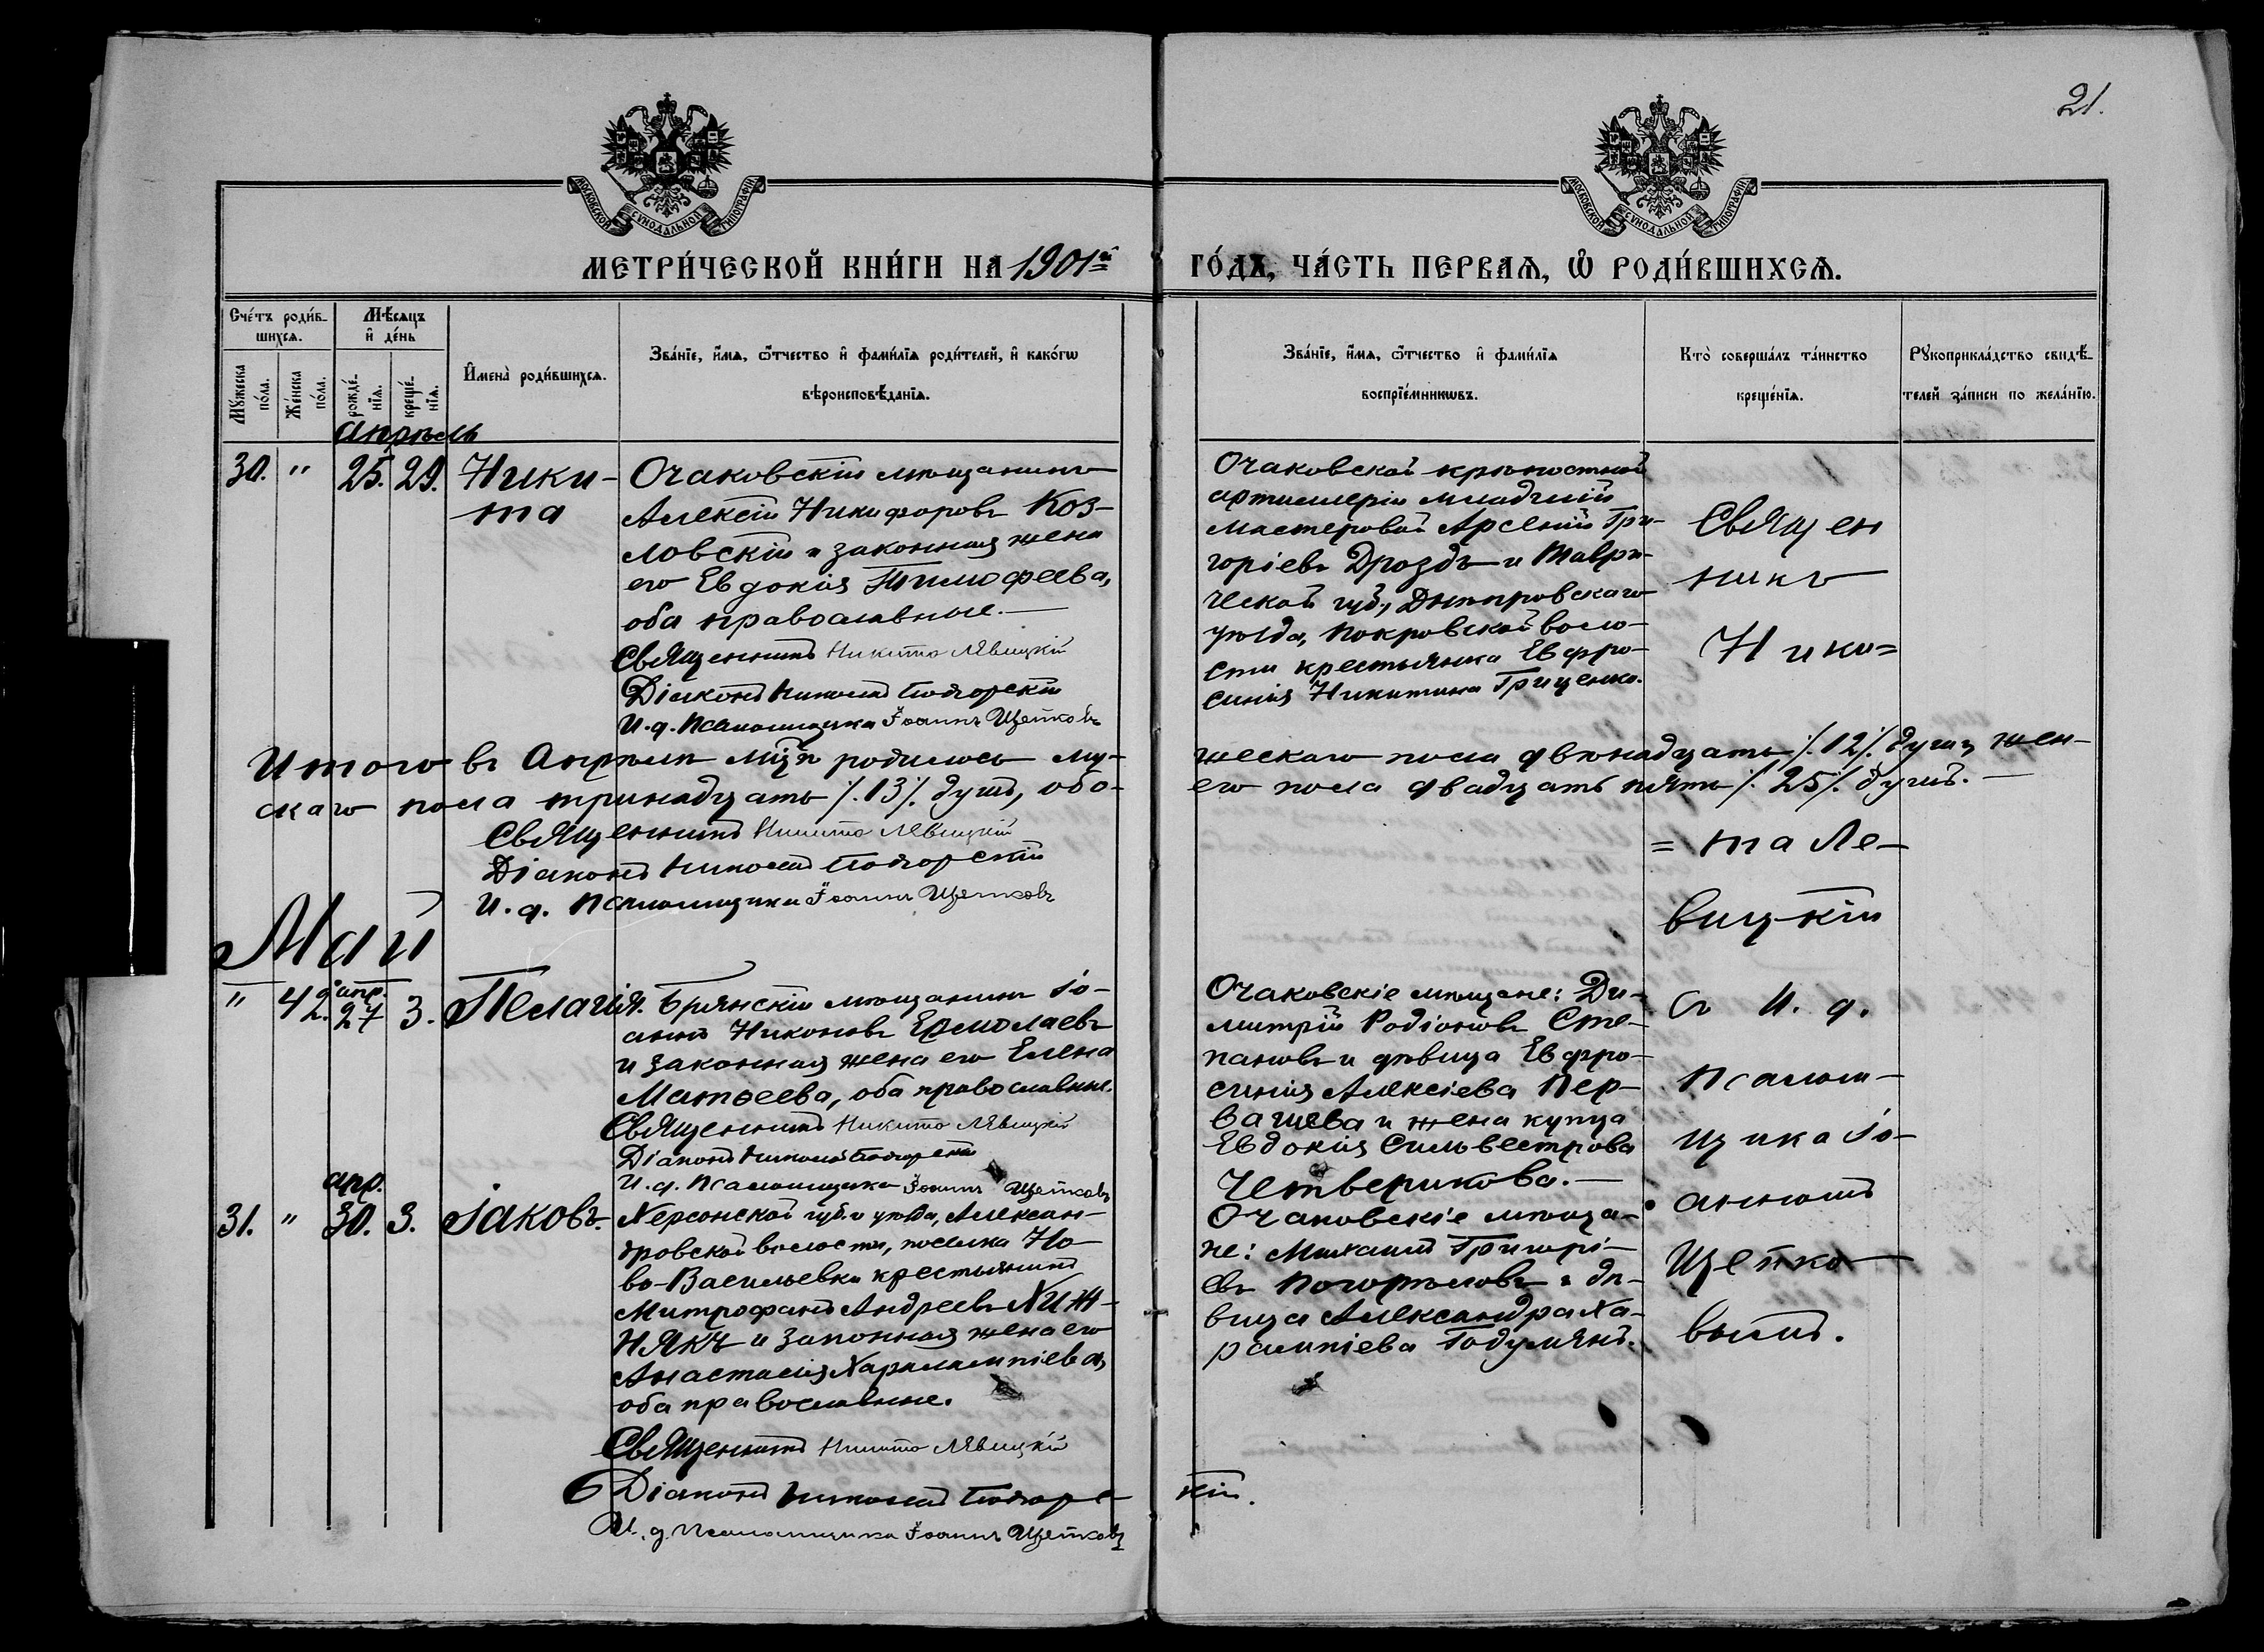 21.
МОСКОВСКОЙ СѴНОДАЛЬНОЙ ТИПОГРАФІИ
МОСКОВСКОЙ СѴНОДАЛЬНОЙ ТИПОГРАФІИ
МЕТРИ́ЧЕСКОЙ КНИ́ГИ НА 1901й
ГО́ДЪ, ЧА́СТЬ ПЕРВАѦ, Ѡ҆ РОДИ́ВШИХСѦ.
Сче́тъ роди́в-
шихсѧ.
Мѣ́сѧцъ
и҆ де́нь
Мꙋ́жеска
по́ла.
Же́нска
по́ла.
рожде́-
нїѧ.
креще́-
нїѧ.
И҆мена̀ роди́вшихсѧ.
Зва́нїе, и҆́мѧ, ѻ҆́тчество и҆ фами́лїѧ роди́телей, и҆ како́гѡ
вѣроисповѣ́данїѧ.
Зва́нїе, и҆́мѧ, ѻ҆́тчество и҆ фами́лїѧ
воспрїе́мникѡвъ.
Кто̀ соверша́лъ та́инство
креще́нїѧ.
Рꙋкоприкла́дство свидѣ́-
телей за́писи по жела́нїю.
апрѣль
30. " 25. 29. Ники-
та
Очаковскій мѣщанинъ
Алексій Никифоровъ Коз-
ловскій и законная жена
его Евдокія Тимофеева,
оба православные.
Священникъ Никита Левицкій
Діаконъ Николай Подгорскій
И. д. Псаломщика Іоаннъ Щетковъ
Очаковской крѣпостной
артиллеріи младшій
мастеровой Арсеній Гри-
горіевъ Дроздъ и Таври-
ческой губ., Днѣпровскаго
уѣзда, Покровской воло-
сти крестьянка Евфро-
синія Никитина Гриценко.
Священ
никъ
Ники=
Итого въ Апрѣлѣ мцѣ родилось му-
жескаго пола двѣнадцать ⁒ 12 ⁒ душъ, жен-
скаго пола тринадцать ⁒ 13 ⁒ душъ, обо-
его пола двадцать пять ⁒ 25 ⁒ душъ.
Священникъ Никита Левицкій
Діаконъ Николай Подгорскій
И. д. Псаломщика Іоаннъ Щетковъ
= та Ле-
вицкій
Май
" 12. апр. 27 3. Пелагія.
Брянскій мѣщанинъ Іо-
аннъ Никоновъ Ермолаевъ
и законная жена его Елена
Матѳеева, оба православные.
Священникъ Никита Левицкій
Діаконъ Николай Подгорскій
И. д. Псаломщика Іоаннъ Щетковъ
Очаковскіе мѣщане: Ди-
митрій Родіоновъ Сте-
пановъ и дѣвица Евфро-
синія Алексіева Пер-
вашева и жена купца
Евдокія Сильвестрова
Четверикова.
Съ И. д.
Псалом-
щика Іо-
анномъ
Щетко-
вымъ.
апр.
31. " 30. 3. Іаковъ.
Херсонской губ. и уѣзда, Алексан-
дровской волости, поселка Но-
во-Васильевки крестьянинъ
Митрофанъ Андреевъ Хиж-
някъ и законная жена его
Анастасія Харалампіева,
оба православные.
Священникъ Никита Левицкій
Діаконъ Николай Подгорс-
кій.
И. д. Псаломщика Іоаннъ Щетковъ
Очаковскіе мѣща-
не: Михаилъ Григорі-
евъ Погорѣловъ и дѣ-
вица Александра Ха-
рампіева Годумянъ.